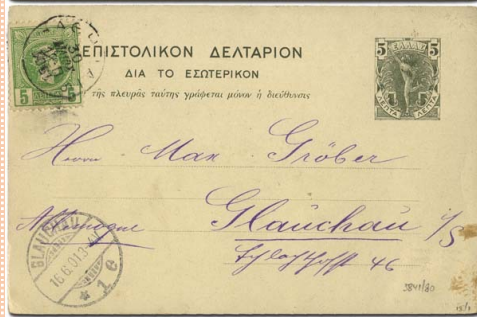 ΕΠΙΣΤΟΛΙΚΟΝ ΔΕΛΤΑΡΙΟΝ
ΔΙΑ ΤΟ ΕΣΩΤΕΡΙΚΟΝ
τῆς πλευρᾶς ταύτης γράφεται μόνον ἡ διεύθυνσις
5 ΕΛΛΑΣ 5
ΛΕΠΤΑ ΛΕΠΤΑ
5 5
30
Herrn Max Gröber
Allemagne Glauchau i/S
46
GLAUCHAU
16.6.01.3-4N
* 1 e
3841/80